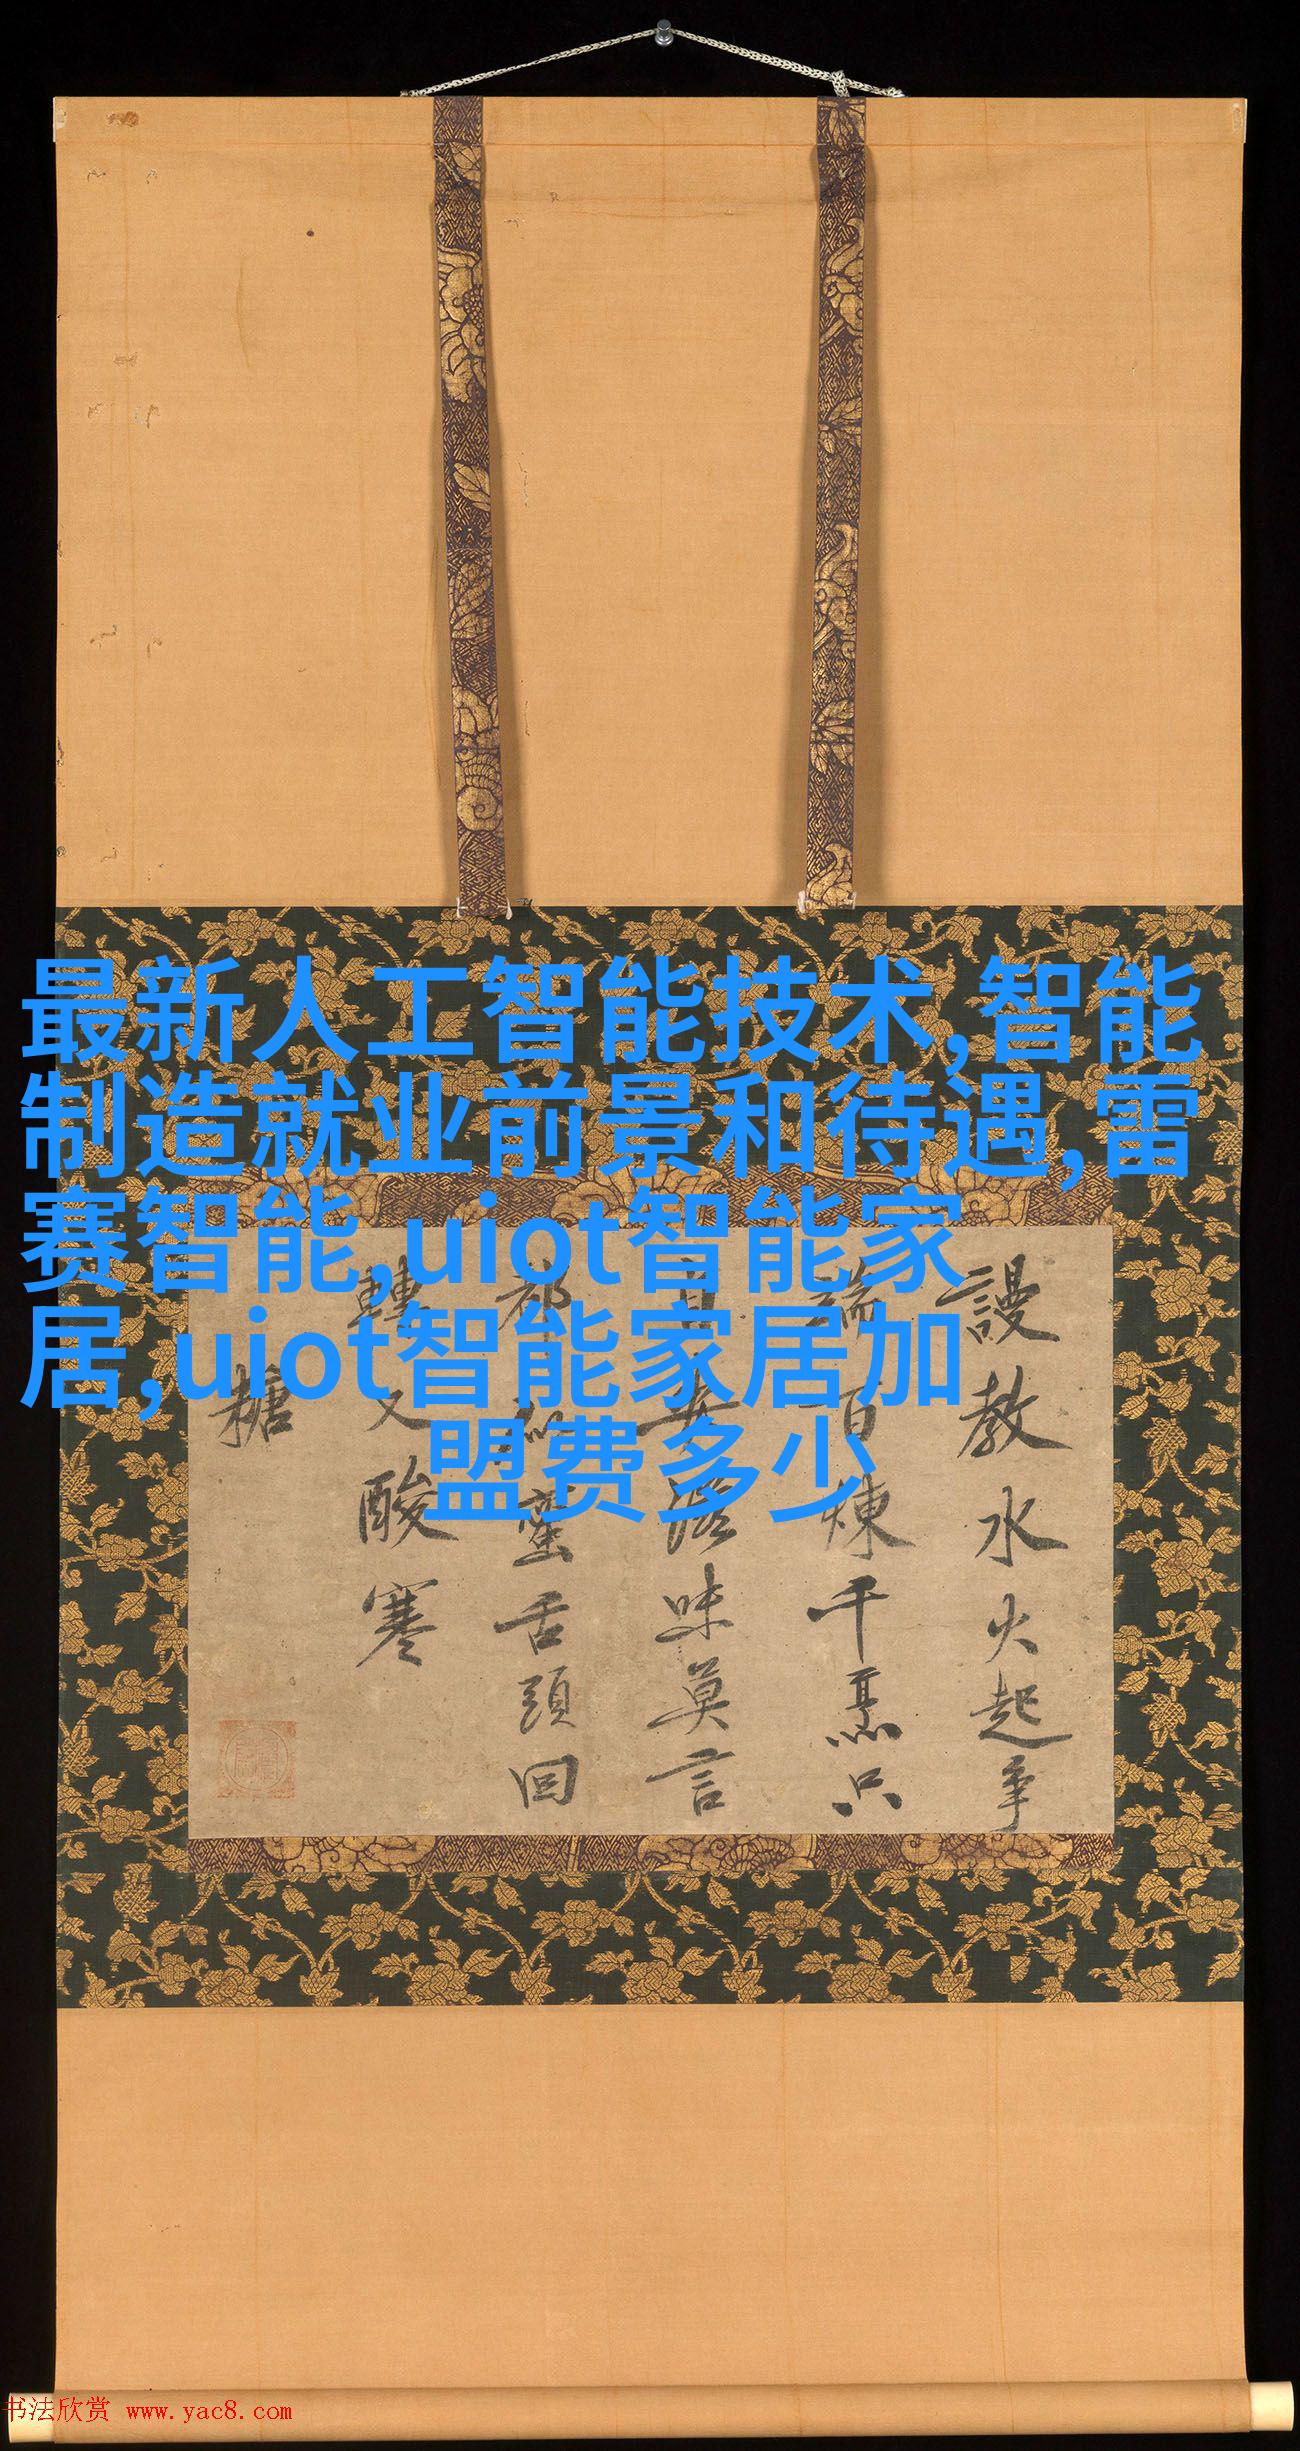 最新人工智能技术,智能
制造就业前景和待遇,雷
赛智能,uiot智能家
居,uiot智能家居加
盟费多少
謾教水火起争
端百煉千烹只
自安滋味莫言
都似蜜舌頭回
轉又酸寒
糖
书法欣赏 www.yac8.com